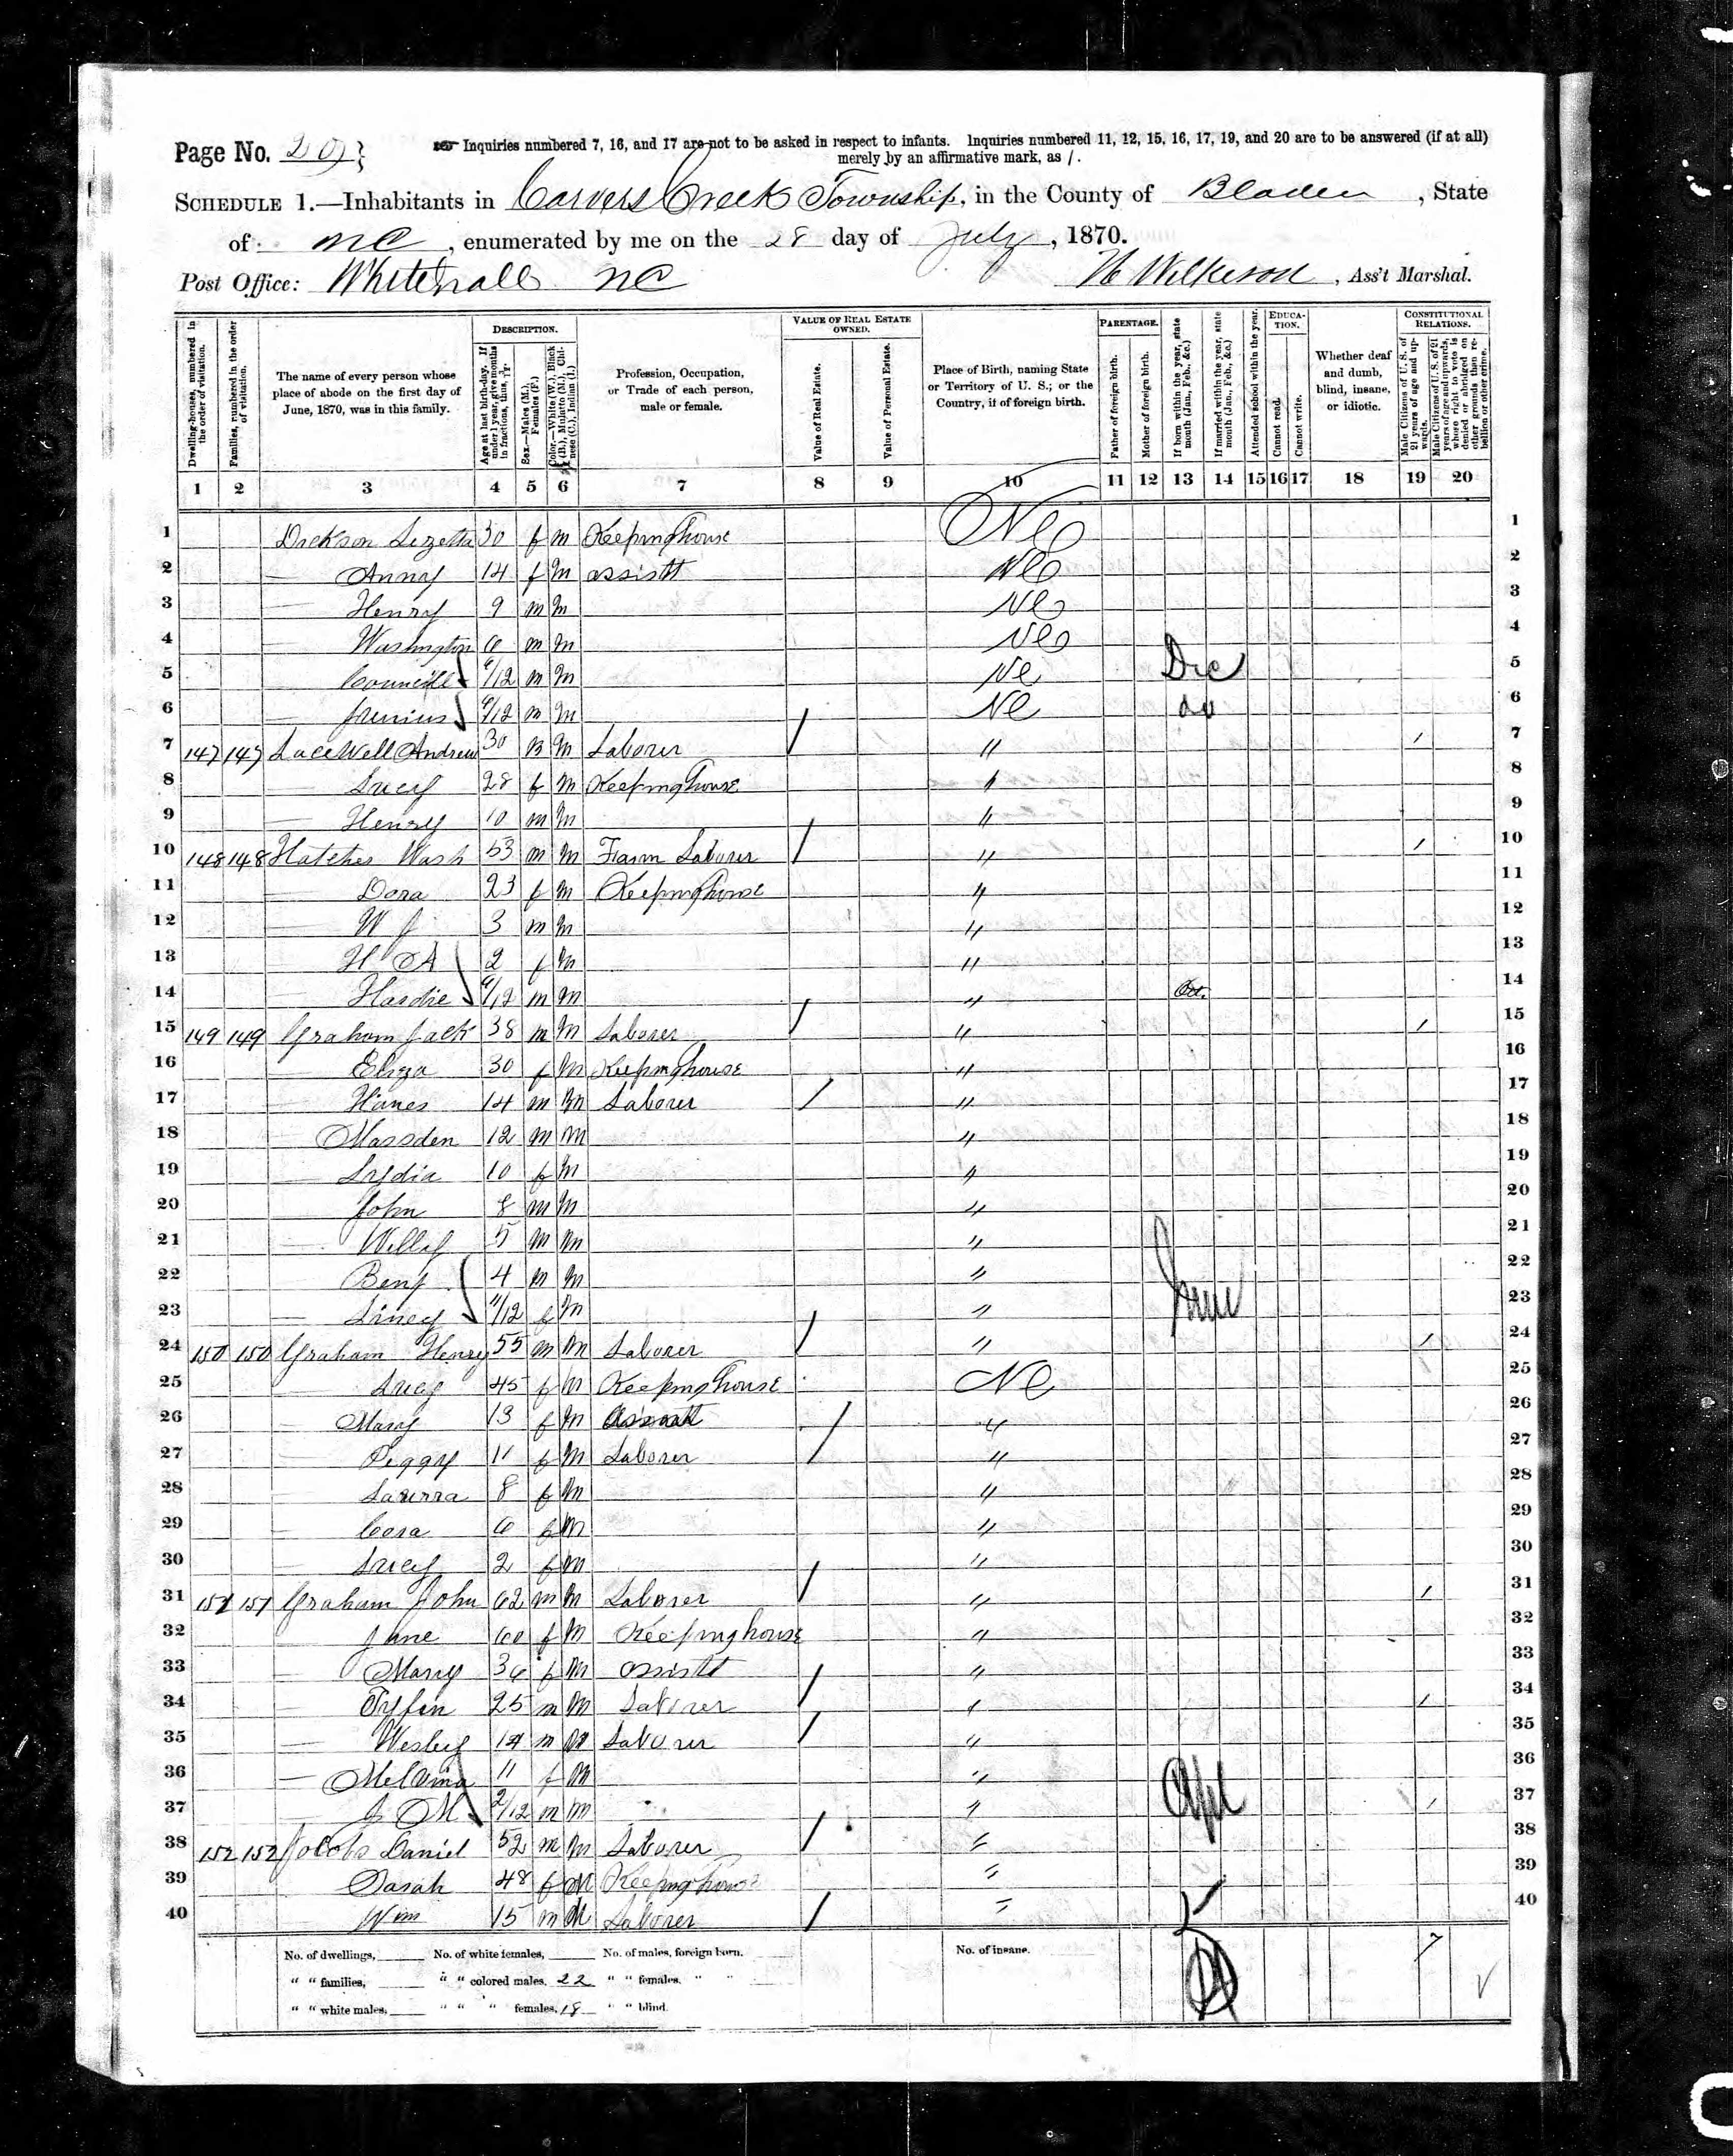 Page No. 20
Inquiries numbered 7, 16, and 17 are not to be asked in respect to infants. Inquiries numbered 11, 12, 15, 16, 17, 19, and 20 are to be answered (if at all)
merely by an affirmative mark, as /.
SCHEDULE 1.—Inhabitants in Carvers Creek Township, in the County of Bladen, State
of NC, enumerated by me on the 28 day of July, 1870.
Post Office: Whitehall NC Wilkerson, Ass't Marshal.
Dwelling-houses, numbered in the order of visitation.
Families, numbered in the order of visitation.
The name of every person whose place of abode on the first day of June, 1870, was in this family.
DESCRIPTION.
Age at last birth-day. If under 1 year, give months in fractions, thus, 3/12.
Sex.—Males (M.), Females (F.)
Color.—White (W.), Black (B.), Mulatto (M.), Chinese (C.), Indian (I.)
Profession, Occupation, or Trade of each person, male or female.
VALUE OF REAL ESTATE OWNED.
Value of Real Estate.
Value of Personal Estate.
Place of Birth, naming State or Territory of U. S.; or the Country, if of foreign birth.
PARENTAGE.
Father of foreign birth.
Mother of foreign birth.
If born within the year, state month (Jan., Feb., &c.)
If married within the year, state month (Jan., Feb., &c.)
Attended school within the year.
EDUCATION.
Cannot read.
Cannot write.
Whether deaf and dumb, blind, insane, or idiotic.
CONSTITUTIONAL RELATIONS.
Male Citizens of U. S. of 21 years of age and upwards.
Male Citizens of U. S. of 21 years of age and upwards, whose right to vote is denied or abridged on other grounds than rebellion or other crime.
1 2 3 4 5 6 7 8 9 10 11 12 13 14 15 16 17 18 19 20
1 Dickson Lizetta 30 f m Keepinghouse NC 1
2 — Anny 14 f m assistt NC 2
3 — Henry 9 m m NC 3
4 — Washington 6 m m NC 4
5 — Councill /12 m m NC Dec 5
6 — Junius /12 m m NC do 6
7 147 147 Lacewell Andrew 30 m Laborer / " / 7
8 — Lucy 28 f m Keepinghouse " 8
9 — Henry 10 m m " 9
10 148 148 Hatcher Wash 53 m m Farm Laborer / " / 10
11 — Dora 23 f m Keepinghouse " 11
12 — W J 3 m m " 12
13 — H A 2 f m " 13
14 — Hardie /12 m m " Oct. 14
15 149 149 Graham Jack 38 m m Laborer / " / 15
16 — Eliza 30 f m Keepinghouse " 16
17 — Hanes 14 m m Laborer / " 17
18 — Massden 12 m m " 18
19 — Lydia 10 f m " 19
20 — John 8 m m " 20
21 — Willy 5 m m " 21
22 — Benj 4 m m " 22
23 — 11/12 f m " June 23
24 150 150 Graham Henry 55 m m Laborer / " / 24
25 — Lucy 45 f m Keepinghouse NC 25
26 — Mary 13 f m Assistt " 26
27 — Peggy 11 f m Laborer / " 27
28 — Laurra 8 f m " 28
29 — Cora 6 f m " 29
30 — Lucy 2 f m " 30
31 151 151 Graham John 62 m m Laborer / " / 31
32 — Jane 60 f m Keepinghouse " 32
33 — Mary 36 f m assistt " 33
34 — 25 m m Laborer / " / 34
35 — Wesley m m Laborer / " 35
36 — Melvina 11 f m " 36
37 — J M 2/12 m m " Apl / 37
38 152 152 Jacobs Daniel 52 m m Laborer / " 38
39 — Sarah 48 f m Keepinghouse " 39
40 — Wm 15 m m Laborer / " 40
No. of dwellings, No. of white females, No. of males, foreign born. No. of insane. 7
" " families, " " colored males, 22 " " females, " "
" " white males, " " " females, 18 " " blind.